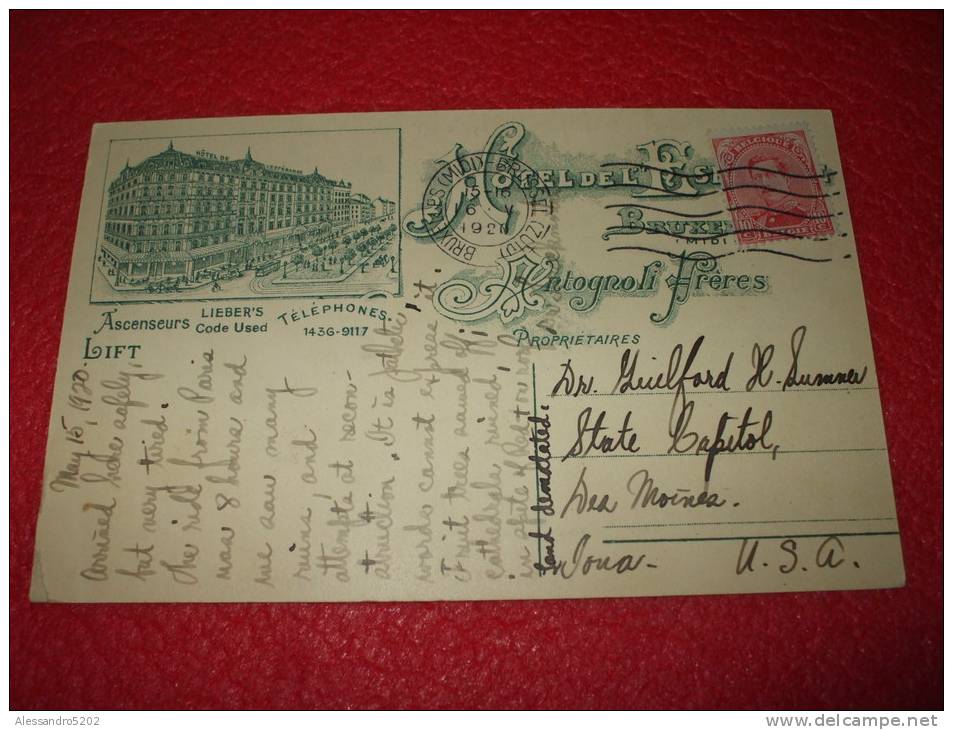 HÔTEL DE
HÔTEL DE L'ES
BRUXE
(MIDI
Antognoli Frères
PROPRIÉTAIRES
Ascenseurs
LIFT
LIEBER'S
Code Used
TÉLÉPHONES.
1436-9117
BRUXELLES (MIDI)-BRUSSEL (ZUID)
6 V
1920
BELGIQUE
BELGIË
May 15, 1920.
Arrived here safely,
but very tired.
The ride from Paris
was 8 hours and
we saw many
ruins, and
attempts at recon-
struction. It is pathetic
words cannot express it.
Fruit trees sawed off,
cathedrals ruined,
land devastated.
Dr. Guilford H. Sumner
State Capitol,
Des Moines.
Iowa-
U. S. A.
Alessandro5202
www.delcampe.net